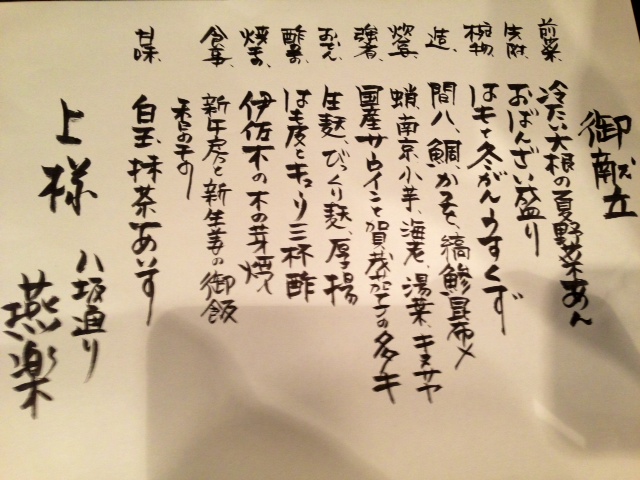 御献立
前菜、冷たい大根の夏野菜あん
先附、おばんざい盛り
椀物、はもと冬がんうすくず
造、間八、鯛かこを、縞鯵昆布〆
炊合、蛸、南京、小芋、海老、湯葉、キヌサヤ
強肴、国産サーロインと賀茂茄子のタタキ
おでん、生麩、びっくり麩、厚揚
酢の、はも皮とキューリ三杯酢
焼もの、伊佐木の木の芽焼
食事、新牛房と新生姜の御飯
香の
甘味、白玉抹茶あいす
上様
八坂通り
燕楽